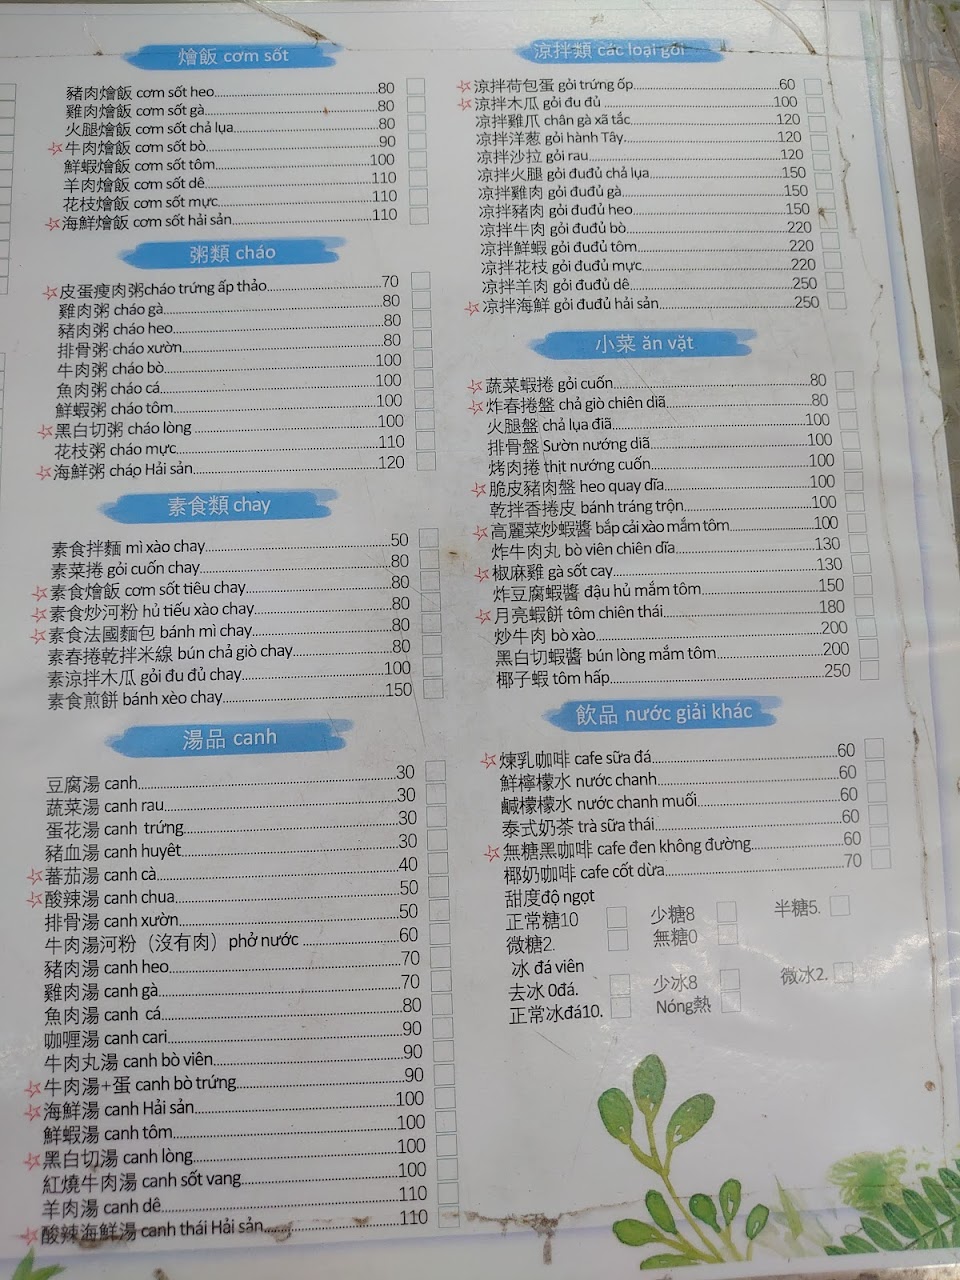 燴飯 cơm sốt
豬肉燴飯 cơm sốt heo 80
雞肉燴飯 cơm sốt gà 80
火腿燴飯 cơm sốt chả lụa 80
☆牛肉燴飯 cơm sốt bò 90
鮮蝦燴飯 cơm sốt tôm 100
羊肉燴飯 cơm sốt dê 110
花枝燴飯 cơm sốt mực 110
☆海鮮燴飯 cơm sốt hải sản 110
粥類 cháo
☆皮蛋瘦肉粥cháo trứng ấp thảo 70
雞肉粥 cháo gà 80
豬肉粥 cháo heo 80
排骨粥 cháo xườn 80
牛肉粥 cháo bò 100
魚肉粥 cháo cá 100
鮮蝦粥 cháo tôm 100
☆黑白切粥 cháo lòng 100
花枝粥 cháo mực 110
☆海鮮粥 cháp Hải sản 120
素食類 chay
素食拌麵 mì xào chay 50
素菜捲 gỏi cuốn chay 80
☆素食燴飯 cơm sốt tiêu chay 80
☆素食炒河粉 hủ tiếu xào chay 80
☆素食法國麵包 bánh mì chay 80
素春捲乾拌米線 bún chả giò chay 80
素涼拌木瓜 gỏi đu đủ chay 100
素食煎餅 bánh xèo chay 150
湯品 canh
豆腐湯 canh 30
蔬菜湯 canh rau 30
蛋花湯 canh trứng 30
豬血湯 canh huyêt 30
☆蕃茄湯 canh cà 40
☆酸辣湯 canh chua 50
排骨湯 canh xườn 50
牛肉湯河粉（沒有肉）phở nước 60
豬肉湯 canh heo 70
雞肉湯 canh gà 70
魚肉湯 canh cá 80
咖喱湯 canh cari 90
牛肉丸湯 canh bò viên 90
☆牛肉湯+蛋 canh bò trứng 90
☆海鮮湯 canh Hải sản 100
鮮蝦湯 canh tôm 100
☆黑白切湯 canh lòng 100
紅燒牛肉湯 canh sốt vang 100
羊肉湯 canh dê 110
☆酸辣海鮮湯 canh thái Hải sản 110
涼拌類 các loại gỏi
☆涼拌荷包蛋 gỏi trứng ốp 60
☆涼拌木瓜 gỏi đu đủ 100
涼拌雞爪 chân gà xã tắc 120
涼拌洋葱 gỏi hành Tây 120
涼拌沙拉 gỏi rau 120
涼拌火腿 gỏi đuđủ chả lụa 150
涼拌雞肉 gỏi đuđủ gà 150
涼拌豬肉 gỏi đuđủ heo 150
涼拌牛肉 gỏi đuđủ bò 220
涼拌鮮蝦 gỏi đuđủ tôm 220
涼拌花枝 gỏi đuđủ mực 220
涼拌羊肉 gỏi đuđủ dê 250
☆涼拌海鮮 gỏi đuđủ hải sản 250
小菜 ăn vặt
☆蔬菜蝦捲 gỏi cuốn 80
☆炸春捲盤 chả giò chiên diã 80
火腿盤 chả lụa điã 100
排骨盤 Sườn nướng diã 100
烤肉捲 thịt nướng cuốn 100
☆脆皮豬肉盤 heo quay dĩa 100
乾拌香捲皮 bánh tráng trộn 100
☆高麗菜炒蝦醬 bắp cải xào mắm tôm 100
炸牛肉丸 bò viên chiên dĩa 130
☆椒麻雞 gà sốt cay 130
炸豆腐蝦醬 đậu hủ mắm tôm 150
☆月亮蝦餅 tôm chiên thái 180
炒牛肉 bò xào 200
黑白切蝦醬 bún lòng mắm tôm 200
椰子蝦 tôm hấp 250
飲品 nước giải khác
☆煉乳咖啡 cafe sữa đá 60
鮮檸檬水 nước chanh 60
鹹檬檬水 nước chanh muối 60
泰式奶茶 trà sữa thái 60
☆無糖黑咖啡 cafe đen không đường 60
椰奶咖啡 cafe cốt dừa 70
甜度độ ngọt
正常糖10 少糖8 半糖5.
微糖2. 無糖0
冰 đá viên
去冰 0đá. 少冰8 微冰2.
正常冰đá10. Nóng熱